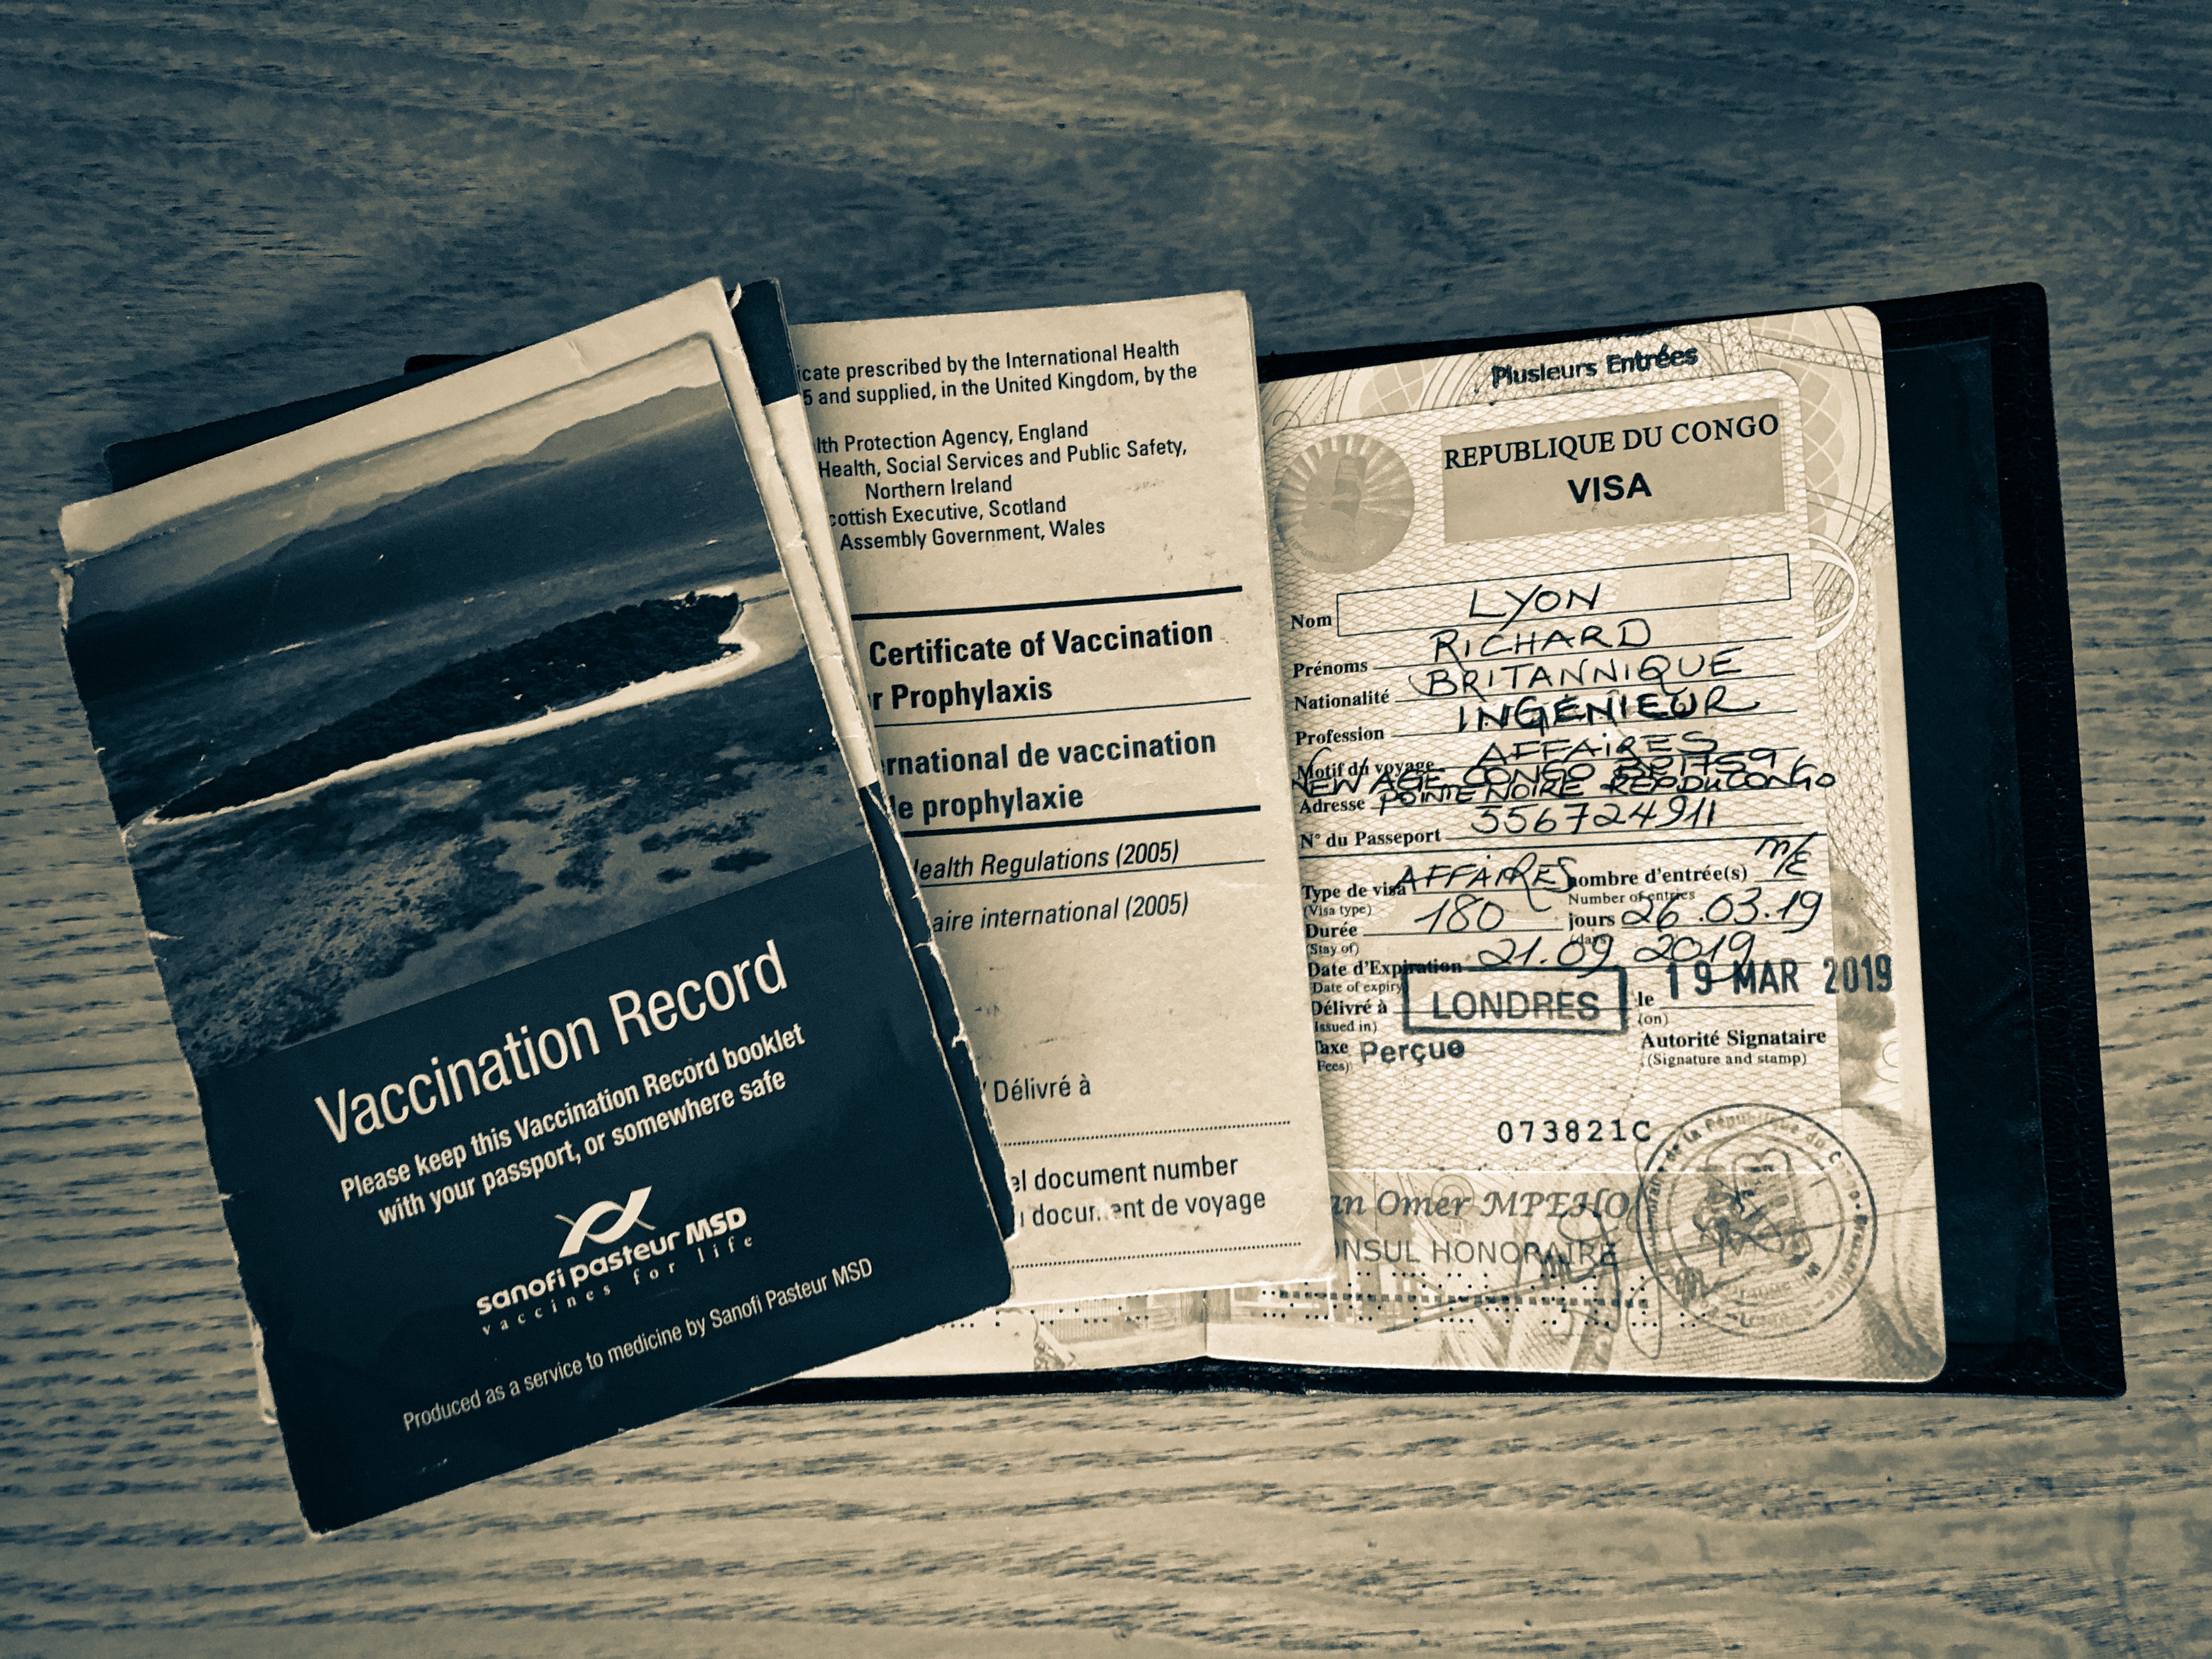 Vaccination Record
Please keep this Vaccination Record booklet
with your passport, or somewhere safe
sanofi pasteur MSD
vaccines for life
Produced as a service to medicine by Sanofi Pasteur MSD
icate prescribed by the International Health
5 and supplied, in the United Kingdom, by the
lth Protection Agency, England
Health, Social Services and Public Safety,
Northern Ireland
cottish Executive, Scotland
Assembly Government, Wales
Certificate of Vaccination
r Prophylaxis
rnational de vaccination
le prophylaxie
Health Regulations (2005)
aire international (2005)
/ Délivré à
el document number
document de voyage
Plusieurs Entrées
REPUBLIQUE DU CONGO
VISA
Nom LYON
Prénoms RICHARD
Nationalité BRITANNIQUE
Profession INGÉNIEUR
Motif du voyage AFFAIRES
NEW AGE CONGO
Adresse POINTE NOIRE REP DU CONGO
N° du Passeport 556724911
Type de visa AFFAIRES nombre d'entrée(s) M/E
(Visa type) Number of entries
Durée 180 jours 26.03.19
(Stay of) (days)
Date d'Expiration 21.09.2019
Date of expiry
Délivré à LONDRES le 19 MAR 2019
Issued in) (on)
Taxe Perçue Autorité Signataire
Fees) (Signature and stamp)
073821C
an Omer MPEHO
NSUL HONORAIRE
de la République du